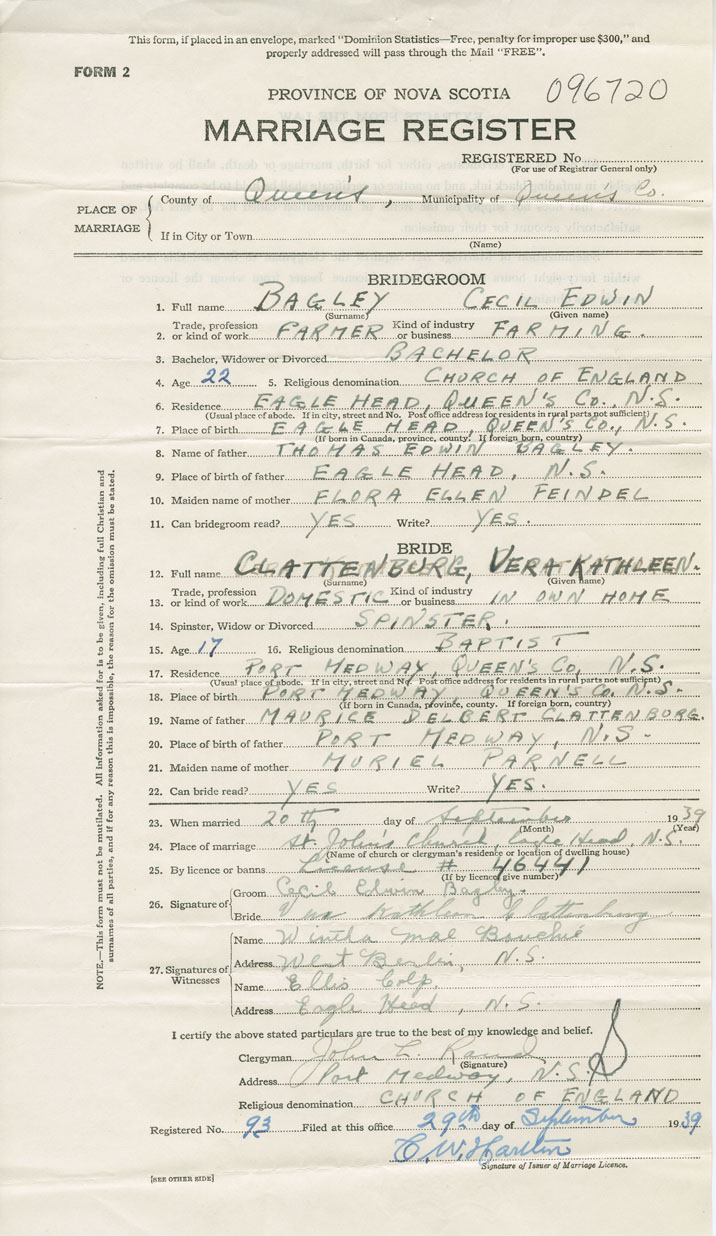 This form, if placed in an envelope, marked "Dominion Statistics—Free, penalty for improper use $300," and
properly addressed will pass through the Mail "FREE".
FORM 2
PROVINCE OF NOVA SCOTIA 096720
MARRIAGE REGISTER
REGISTERED No.
(For use of Registrar General only)
PLACE OF MARRIAGE
County of Queen's, Municipality of Queen's Co.
If in City or Town
(Name)
BRIDEGROOM
1. Full name BAGLEY CECIL EDWIN
(Surname) (Given name)
2. Trade, profession or kind of work FARMER Kind of industry or business FARMING.
3. Bachelor, Widower or Divorced BACHELOR
4. Age 22 5. Religious denomination CHURCH OF ENGLAND
6. Residence EAGLE HEAD, QUEEN'S CO. N.S.
(Usual place of abode. If in city, street and No. Post office address for residents in rural parts not sufficient)
7. Place of birth EAGLE HEAD, QUEEN'S CO., N.S.
(If born in Canada, province, county. If foreign born, country)
8. Name of father THOMAS EDWIN BAGLEY.
9. Place of birth of father EAGLE HEAD, N.S.
10. Maiden name of mother FLORA ELLEN FEINDEL
11. Can bridegroom read? YES Write? YES.
BRIDE
12. Full name CLATTENBURG, VERA KATHLEEN.
(Surname) (Given name)
13. Trade, profession or kind of work DOMESTIC Kind of industry or business IN OWN HOME
14. Spinster, Widow or Divorced SPINSTER.
15. Age 17 16. Religious denomination BAPTIST
17. Residence PORT MEDWAY, QUEEN'S CO, N.S.
(Usual place of abode. If in city, street and No. Post office address for residents in rural parts not sufficient)
18. Place of birth PORT MEDWAY, QUEEN'S CO. N.S.
(If born in Canada, province, county. If foreign born, country)
19. Name of father MAURICE DELBERT CLATTENBURG.
20. Place of birth of father PORT MEDWAY, N.S.
21. Maiden name of mother MURIEL PARNELL
22. Can bride read? YES Write? YES.
23. When married 20th day of September 1939
(Month) (Year)
24. Place of marriage St. John's Church, Eagle Head, N.S.
(Name of church or clergyman's residence or location of dwelling house)
25. By licence or banns License # 46441
(If by licence give number)
26. Signature of
Groom Cecil Edwin Bagley.
Bride Vera Kathleen Clattenburg
27. Signatures of Witnesses
Name Mae Bouché
Address West Berlin, N.S.
Name Ellis Colp.
Address Eagle Head, N.S.
I certify the above stated particulars are true to the best of my knowledge and belief.
Clergyman John L.
(Signature)
Address Port Medway, N.S.
Religious denomination CHURCH OF ENGLAND
Registered No. 93 Filed at this office 29th day of September 1939
C.W.
Signature of Issuer of Marriage Licence.
[SEE OTHER SIDE]
NOTE.—This form must not be mutilated. All information asked for is to be given, including full Christian and
surnames of all parties, and if for any reason this is impossible, the reason for the omission must be stated.